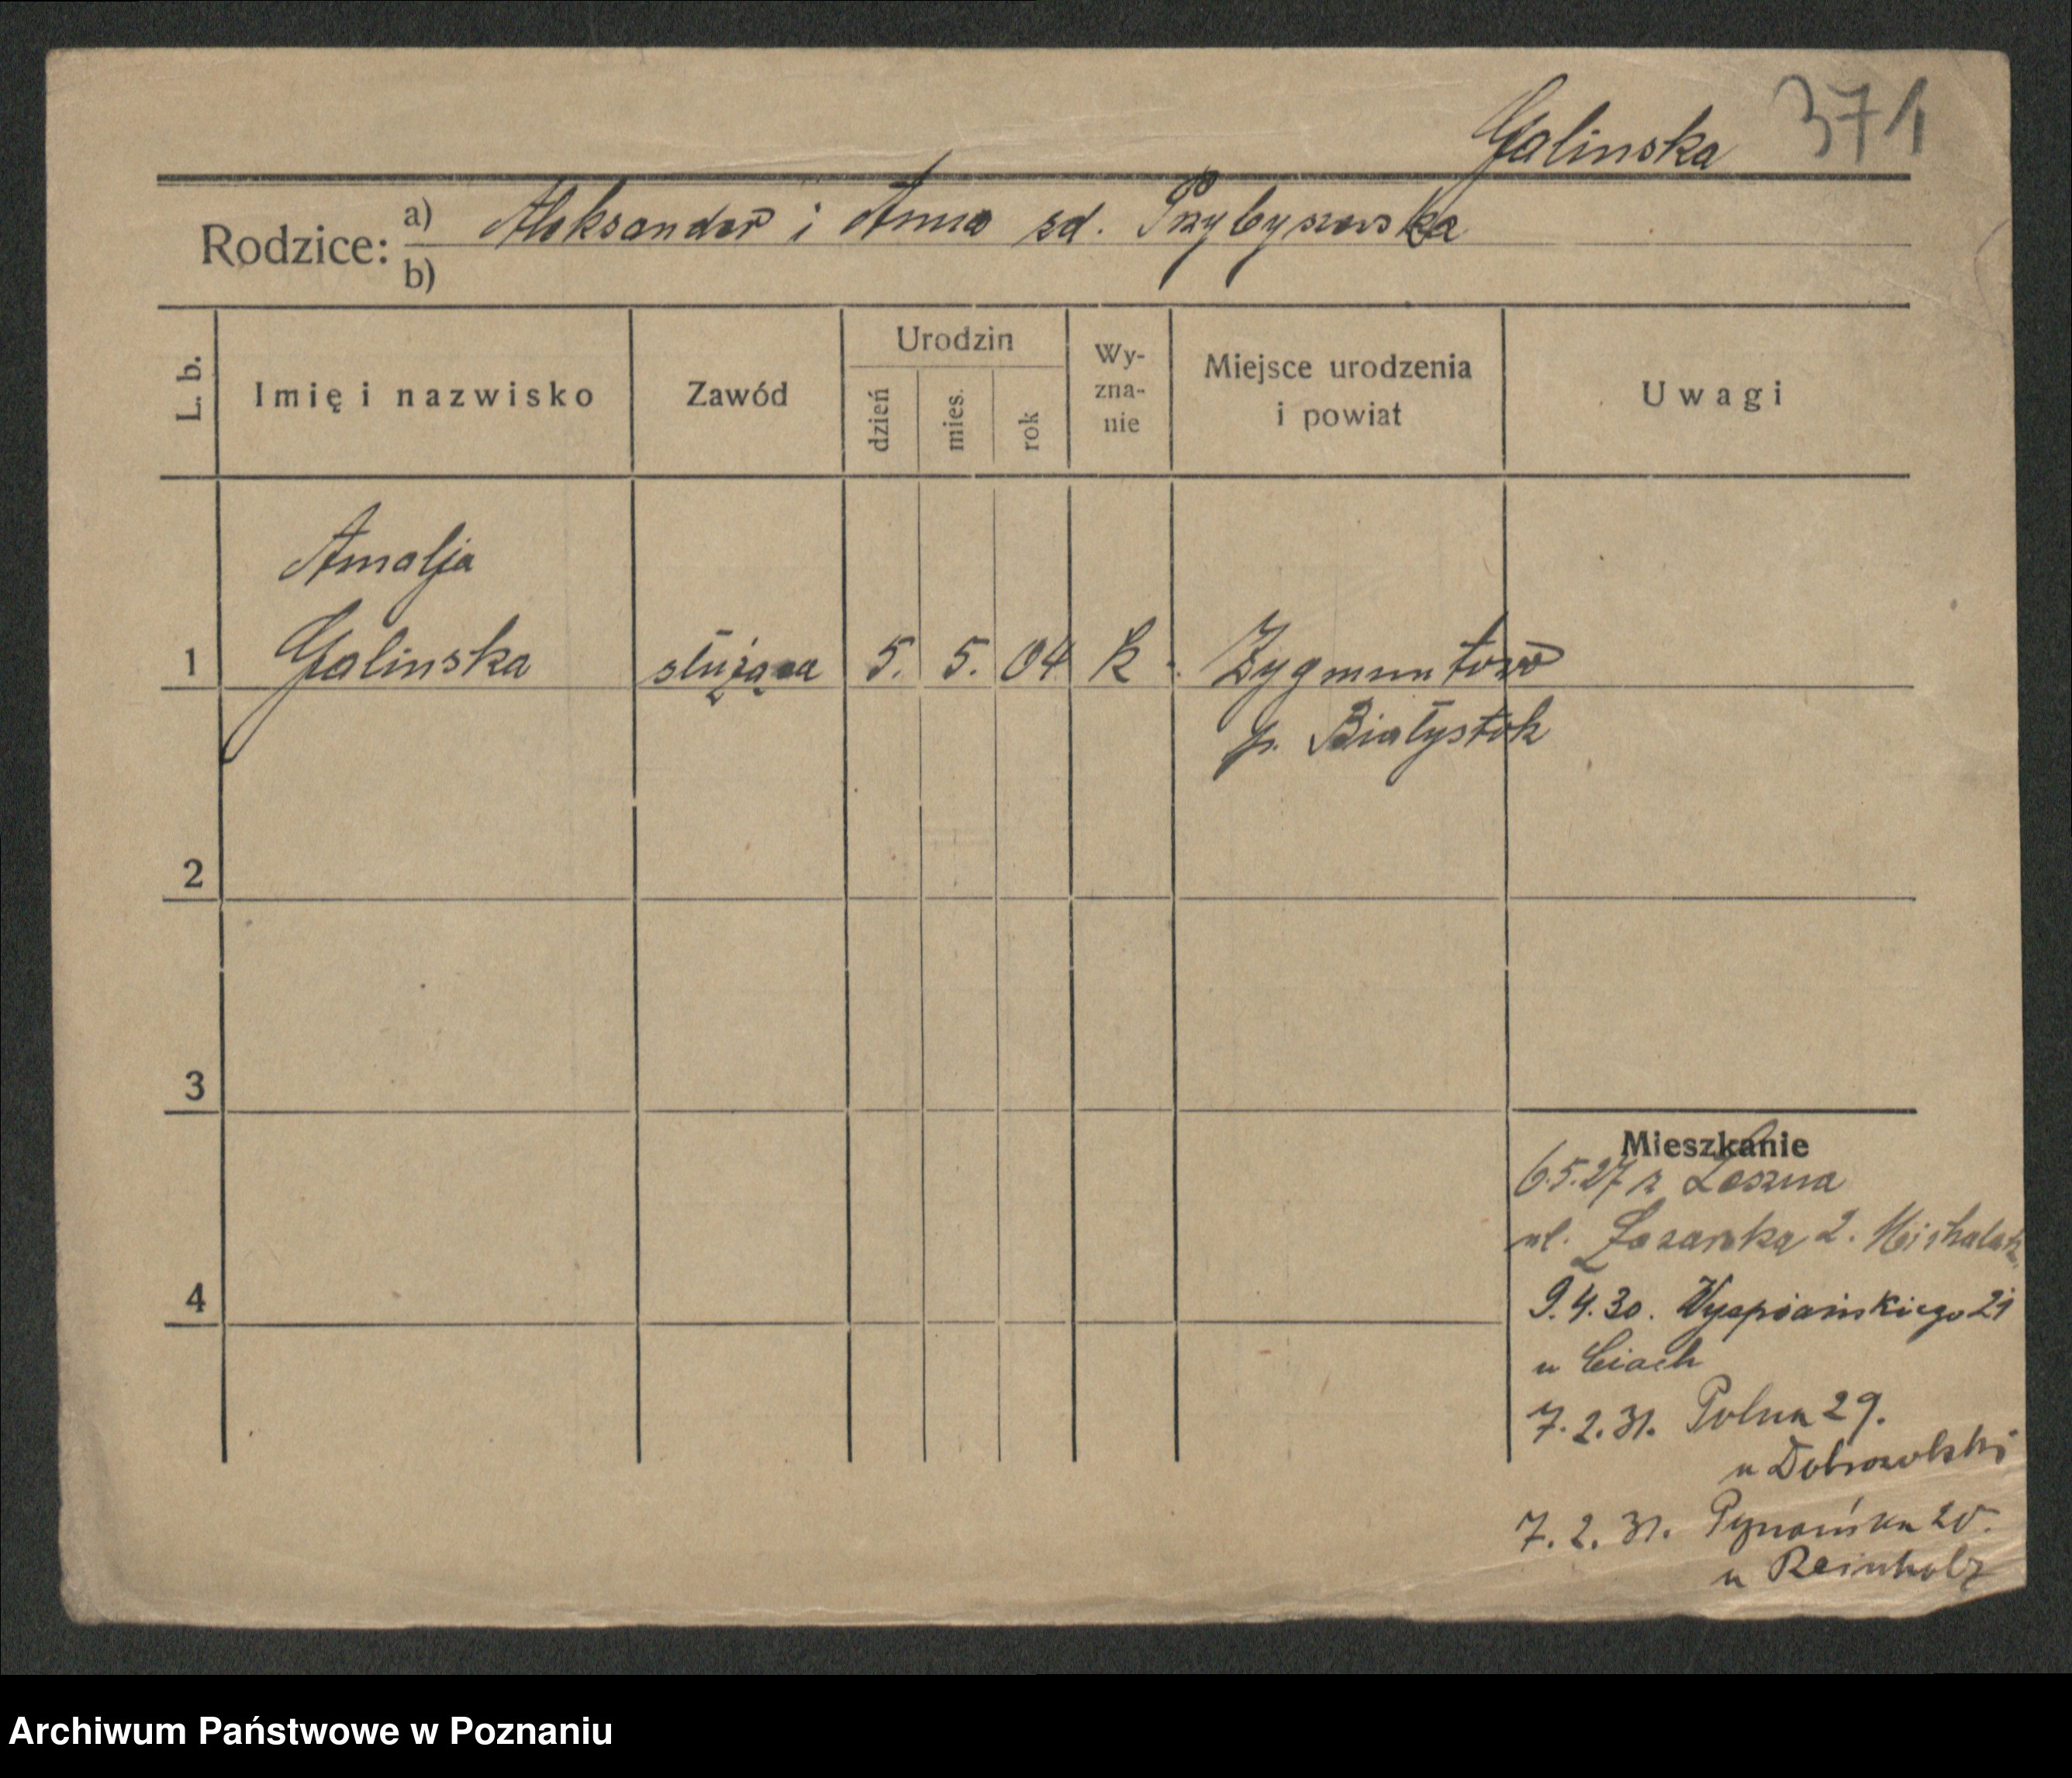 Galinska 371
Rodzice: a) Aleksander i Anna zd. Przybyszewska
b)
L. b.
Imię i nazwisko
Zawód
Urodzin
dzień
mies.
rok
Wy-
zna-
nie
Miejsce urodzenia
i powiat
Uwagi
Amalja
1 Galinska służąca 5. 5. 04 k. Zygmuntowo
p. Białystok
2
3
4
Mieszkanie
6.5.27 z Leszna
ul. Łazarska 2.
9.4.30. Wyspiańskiego 21
u Ciach
7.2.31. Polna 29.
u Dobrowolski
7.2.31.
u Reinholz
Archiwum Państwowe w Poznaniu